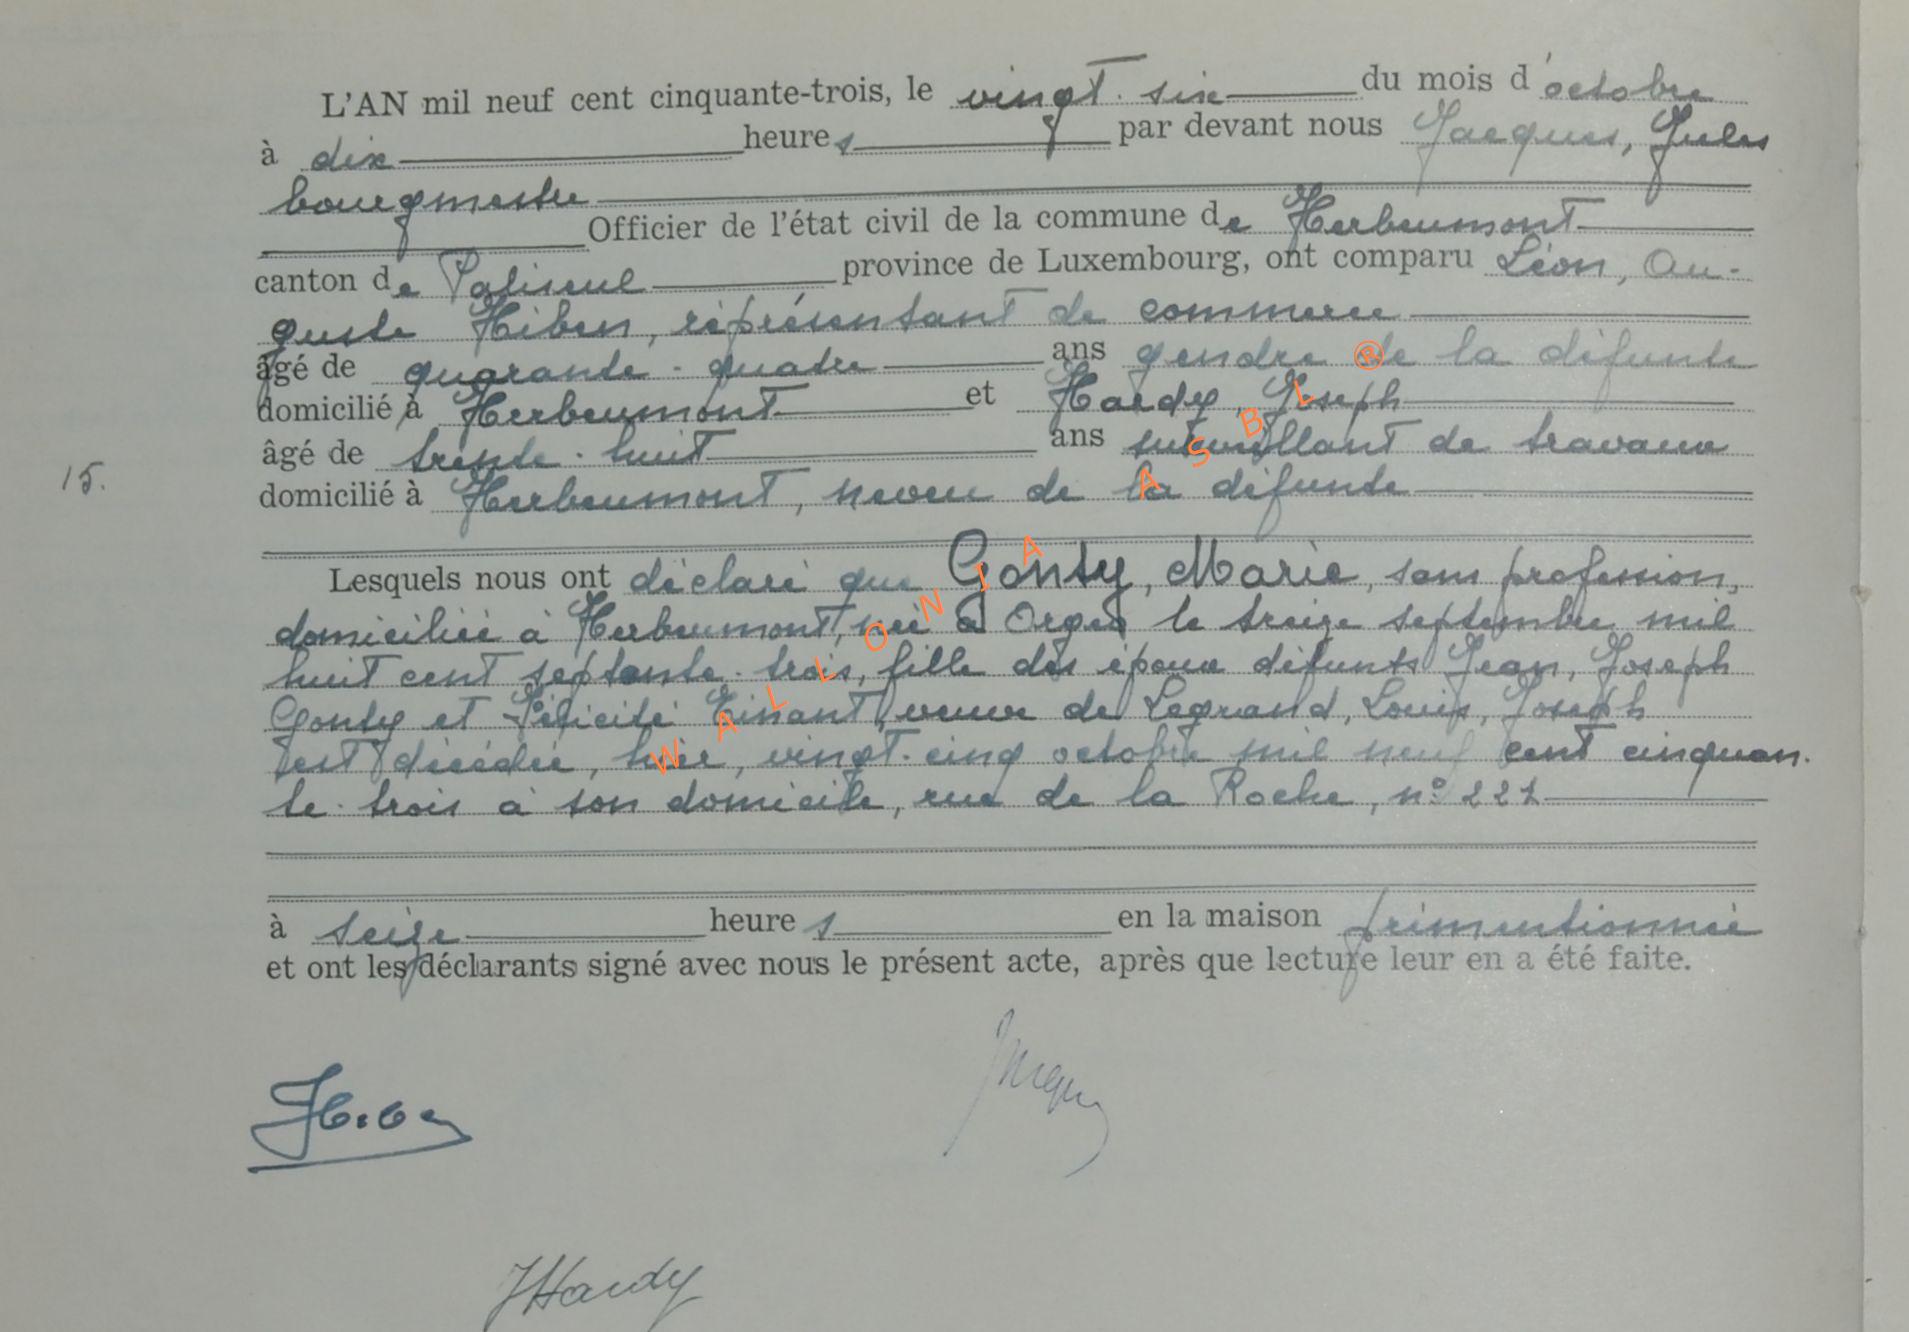 L'AN mil neuf cent cinquante-trois, le vingt-six du mois d'octobre
à dix heures par devant nous Jacques, Jules
bourgmestre
Officier de l'état civil de la commune de Herbeumont
canton de Paliseul province de Luxembourg, ont comparu Léon, Au-
guste Hiben, représentant de commerce
âgé de quarante-quatre ans gendre de la défunte
domicilié à Herbeumont et Hardy, Joseph
âgé de trente-huit ans surveillant de travaux
15.
domicilié à Herbeumont, neveu de la défunte
Lesquels nous ont déclaré que Gonty, Marie, sans profession,
domiciliée à Herbeumont, née à Orgeo le treize septembre mil
huit cent septante-trois, fille des époux défunts Jean, Joseph
Gonty et Félicité Einant, veuve de Legrand, Louis, Joseph
est décédée, hier, vingt-cinq octobre mil neuf cent cinquan-
te-trois à son domicile, rue de la Roche, n° 227
à seize heures en la maison primentionnée
et ont les déclarants signé avec nous le présent acte, après que lecture leur en a été faite.
Hiben
Jacques
JHardy
WALLONIA ASBL ®